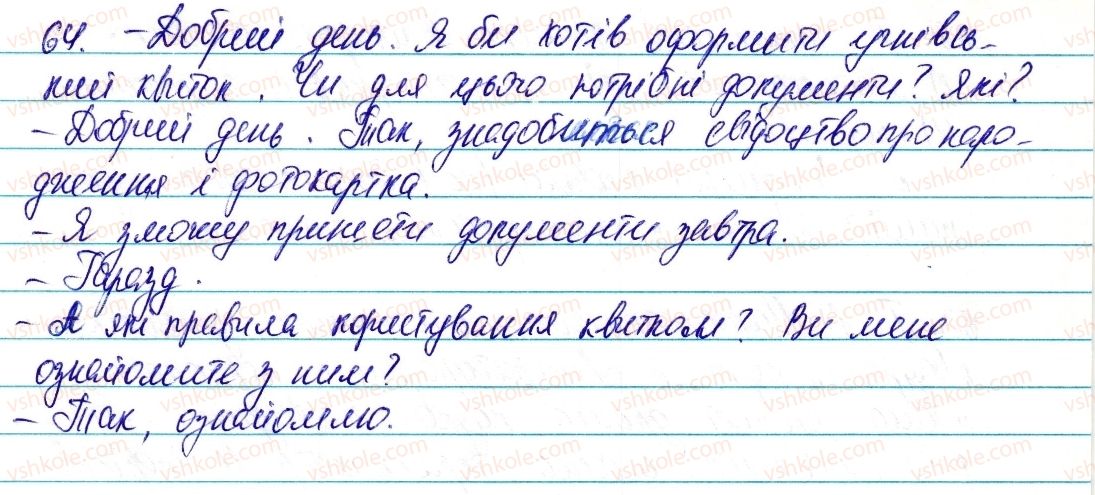 64. – Добрий день. Я би хотів оформити учнівсь-
кий квиток. Чи для цього потрібні документи? Які?
– Добрий день. Так, знадобиться свідоцтво про наро-
дження і фотокартка.
– Я зможу принести документи завтра.
– Гаразд.
– А які правила користування квитком? Ви мене
ознайомите з ним?
– Так, ознайомлю.
vshkole.com